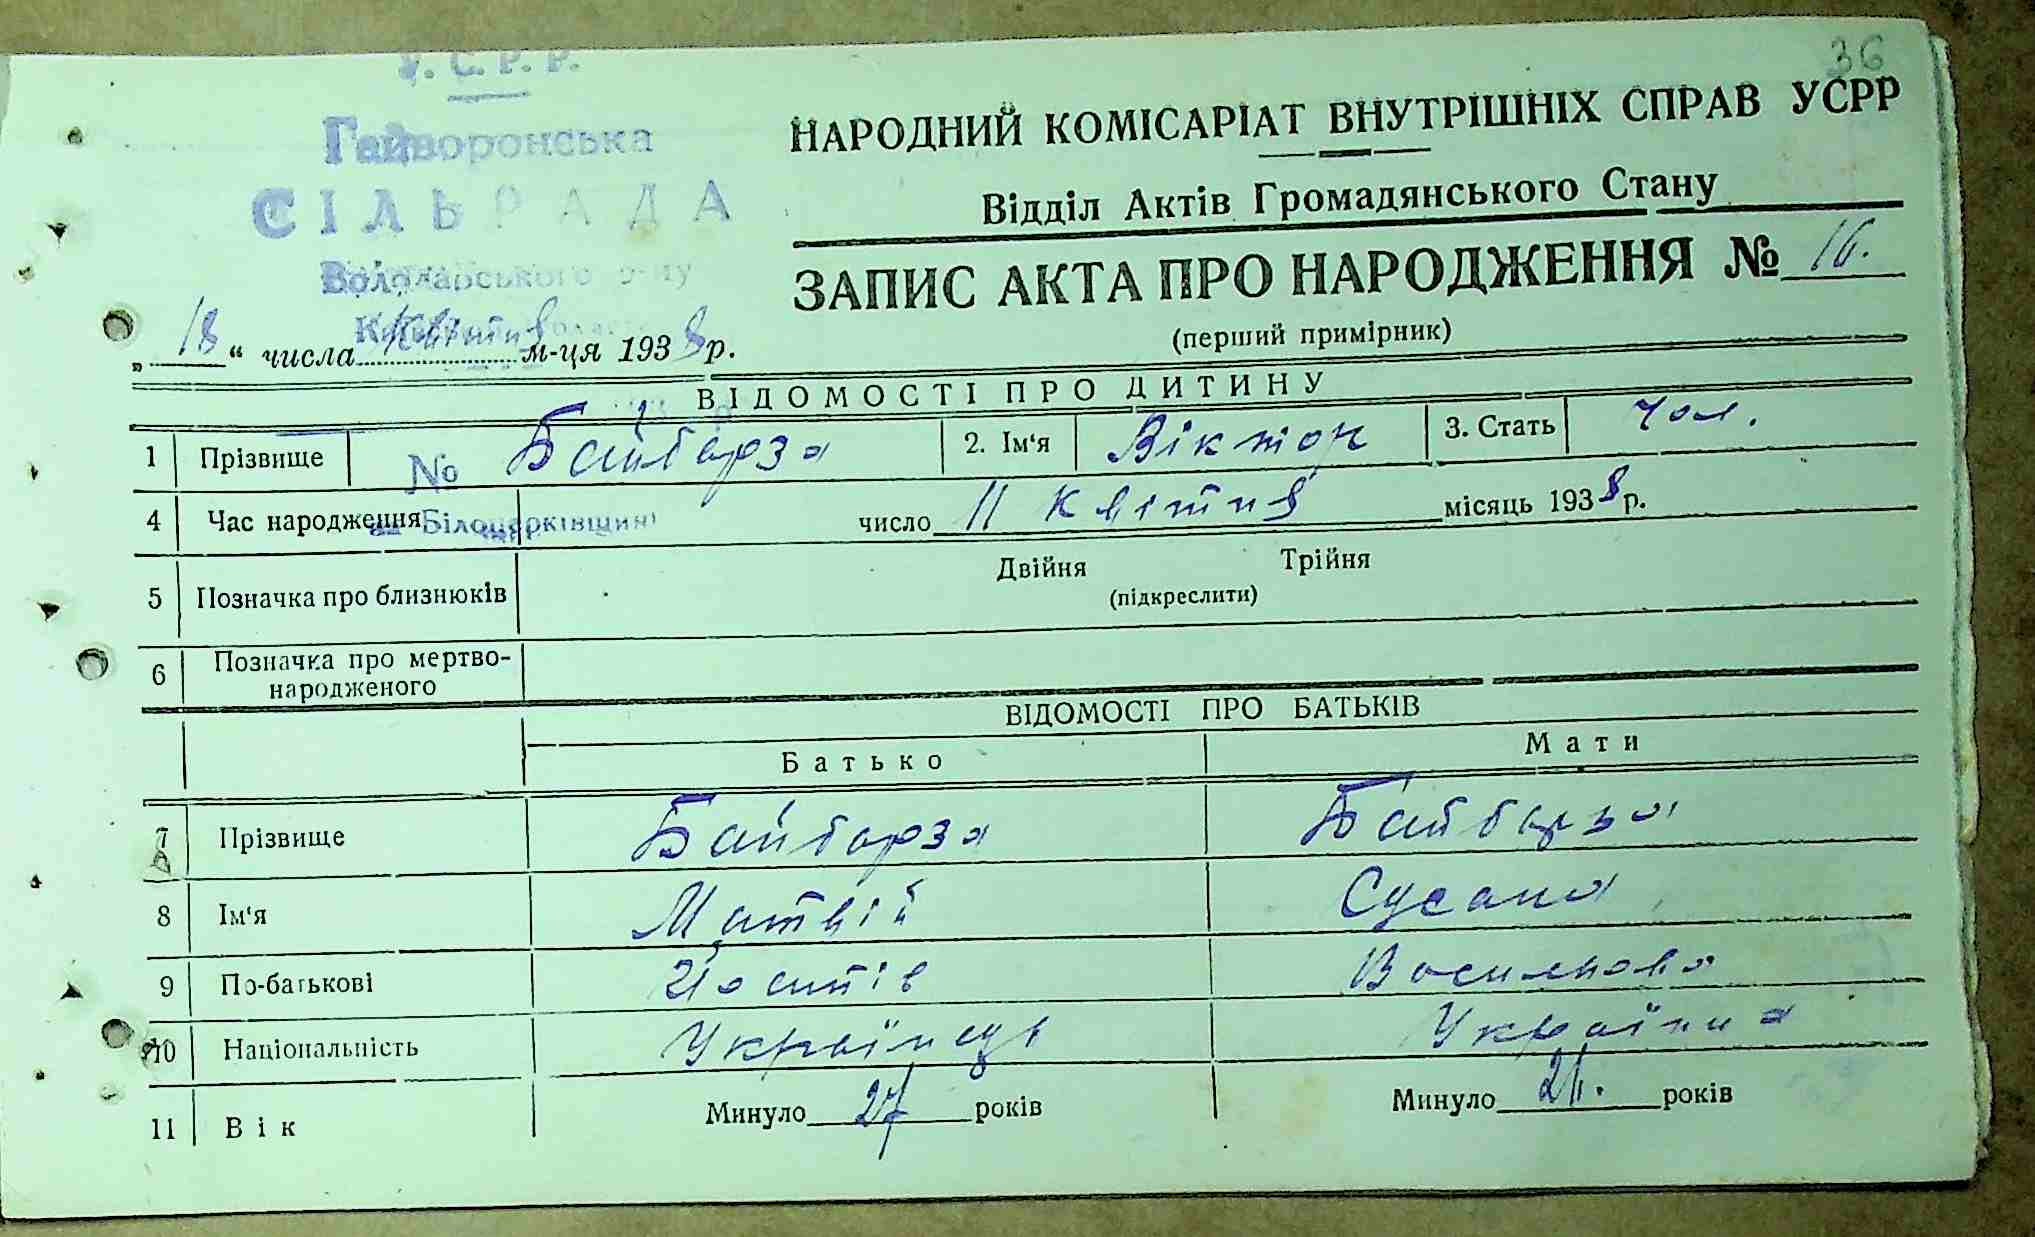 36
У. С. Р. Р.
Гайворонська
СІЛЬРАДА
Володарського р-ну
НАРОДНИЙ КОМІСАРІАТ ВНУТРІШНІХ СПРАВ УСРР
Відділ Актів Громадянського Стану
ЗАПИС АКТА ПРО НАРОДЖЕННЯ № 16.
(перший примірник)
„ 18 “ числа квітня м-ця 1938 р.
ВІДОМОСТІ ПРО ДИТИНУ
1 Прізвище № Байбарза 2. Ім‘я Віктор 3. Стать чол.
4 Час народження на Білоцерківщині число 11 квітня місяць 1938 р.
5 Позначка про близнюків Двійня Трійня
(підкреслити)
6 Позначка про мертво-
народженого
ВІДОМОСТІ ПРО БАТЬКІВ
Батько Мати
7 Прізвище Байбарза Байбарза
8 Ім‘я Матвій Сусана
9 По-батькові Йосипів Васильова
10 Національність Українець Українка
11 Вік Минуло 27 років Минуло 21. років